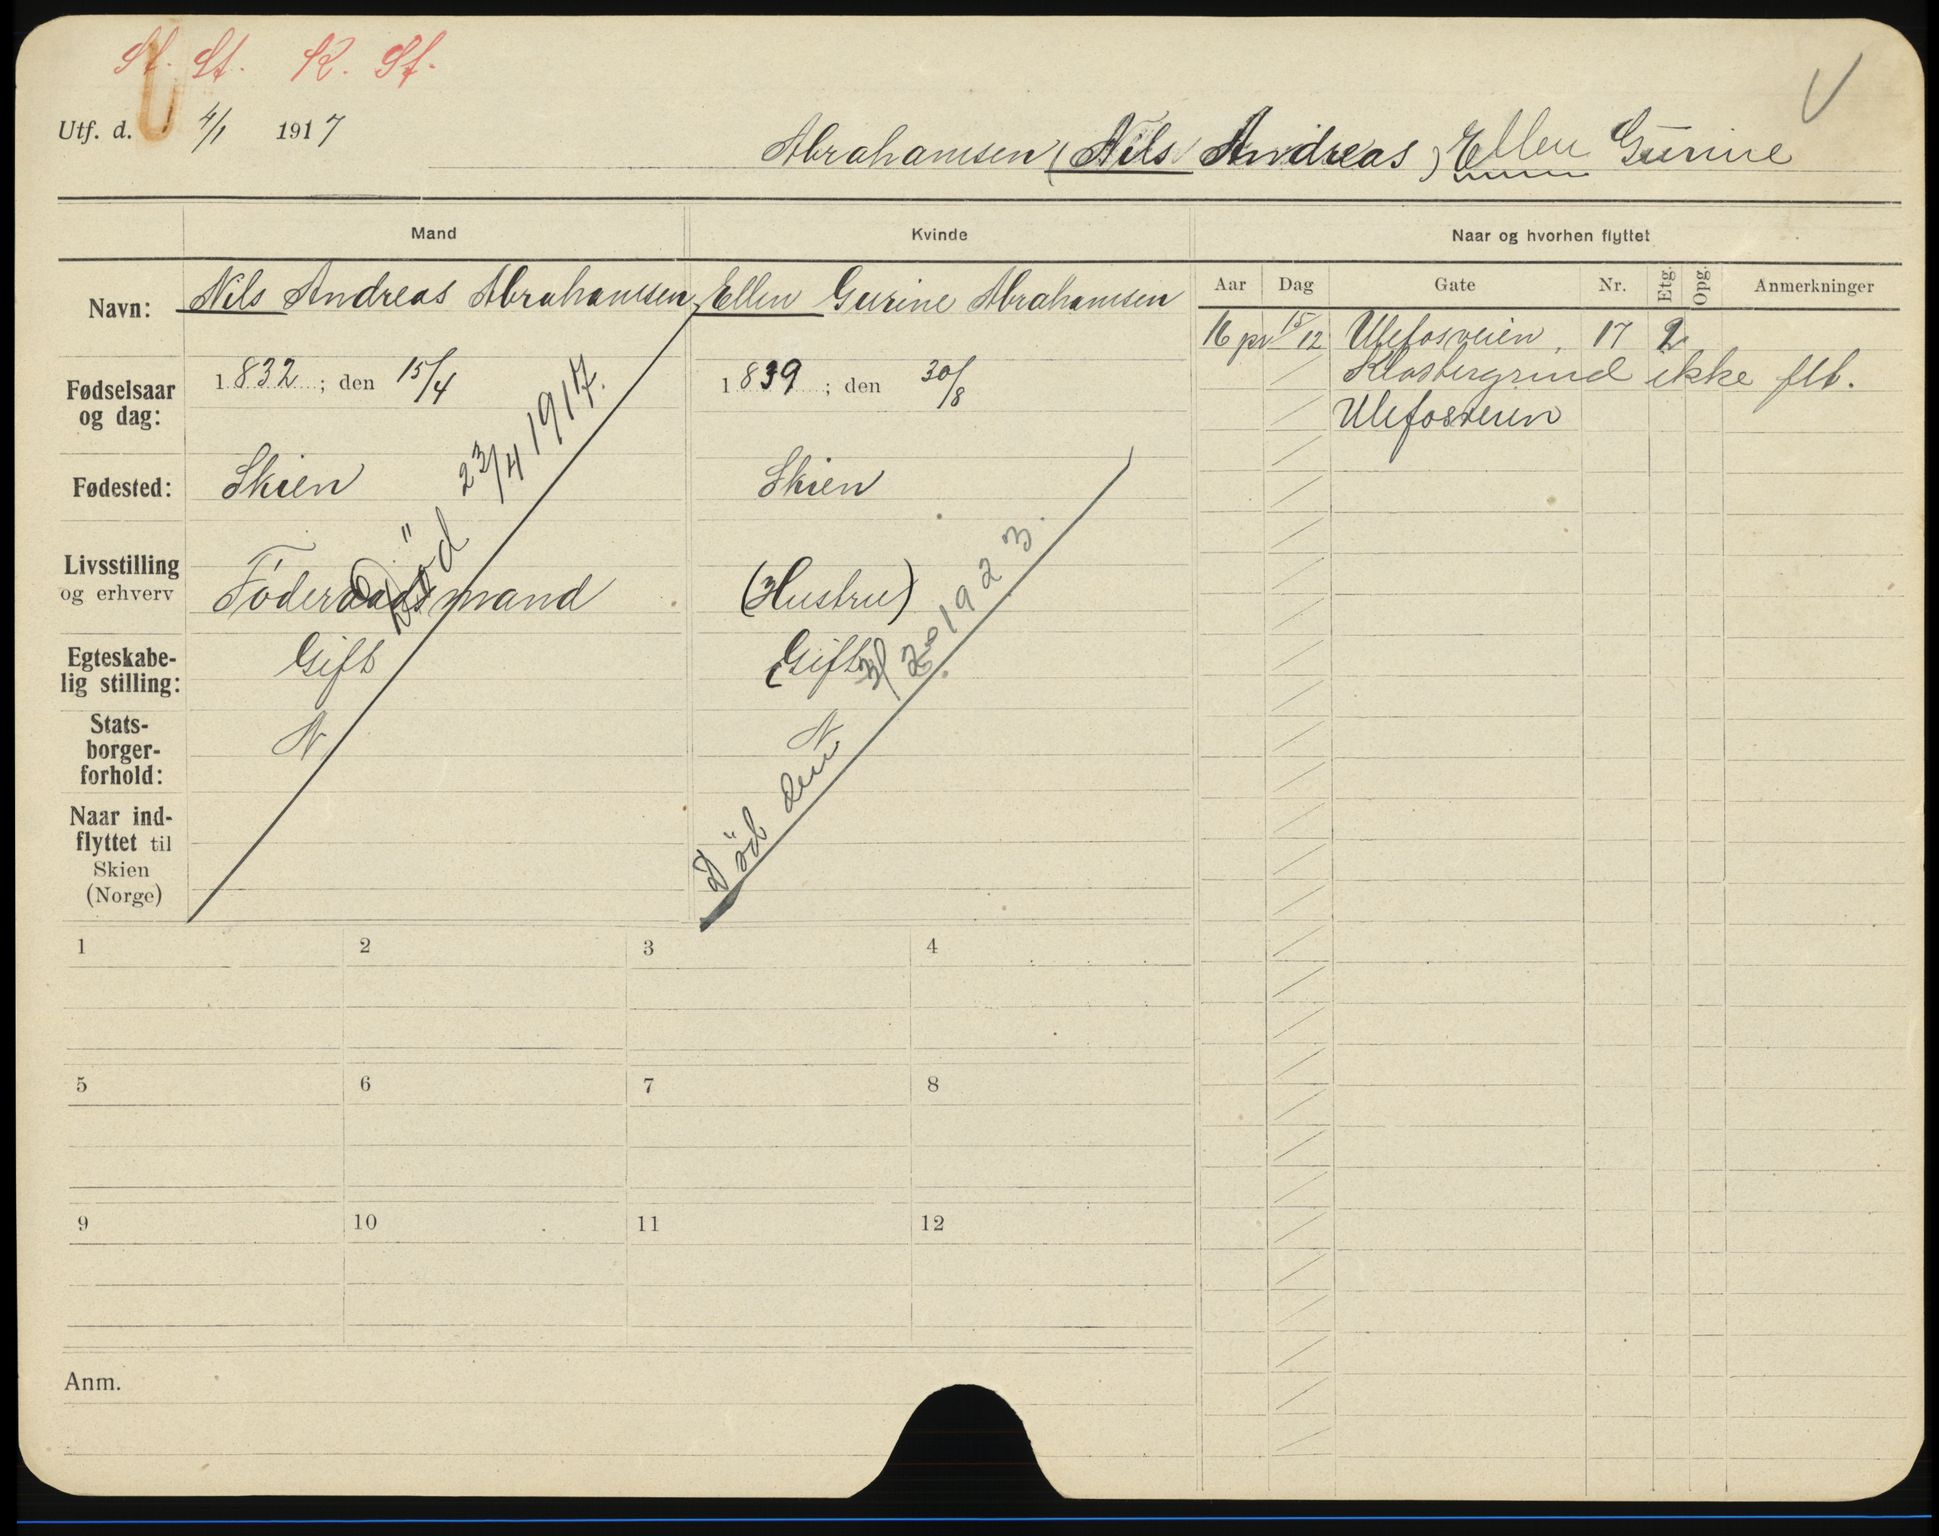 St. St. K. St.
V
Utf. d. 4/1 1917
Abrahamsen (Nils Andreas) Ellen Gurine
Mand
Kvinde
Naar og hvorhen flyttet
Navn: Nils Andreas Abrahamsen Ellen Gurine Abrahamsen
Aar Dag Gate Nr. Etg. Opg. Anmerkninger
16 pr 15/12 Ulefosveien. 17 2
Klostergrind ikke flt.
Ulefosveien
Fødselsaar og dag: 1832; den 15/4 1839; den 30/8
Fødested: Skien Skien
Livsstilling og erhverv Föderaadsmand (Hustru)
Egteskabelig stilling: Gift (Gift
Statsborgerforhold: N N
Naar indflyttet til Skien (Norge)
Död 23/4 1917.
Död den 3/2 1923.
1 2 3 4
5 6 7 8
9 10 11 12
Anm.